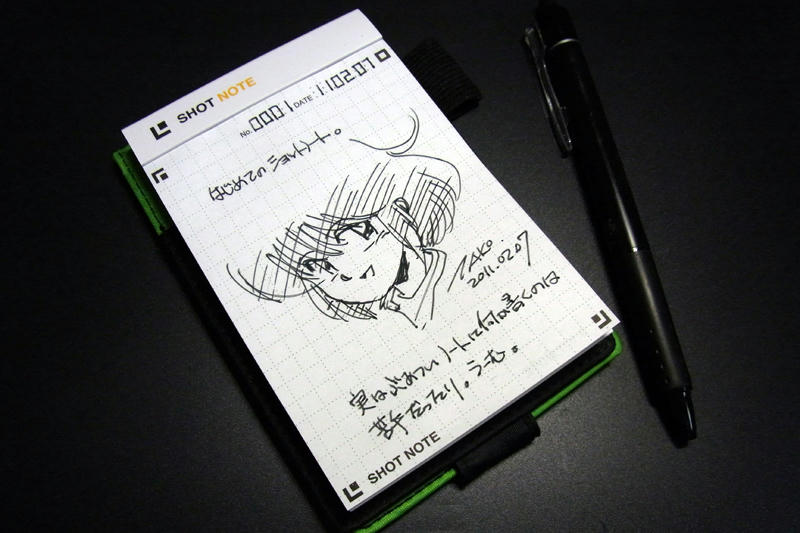 SHOT NOTE
No. 0001 DATE: 11.02.07
はじめてのショットノート。
TAKO
2011.02.07
実はぶあついノートに何か書くのは
苦手だったり。うーむ。
SHOT NOTE